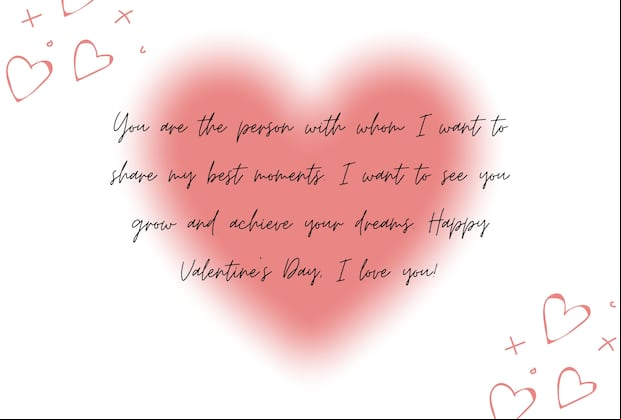 You are the person with whom I want to
share my best moments. I want to see you
grow and achieve your dreams. Happy
Valentine's Day, I love you!